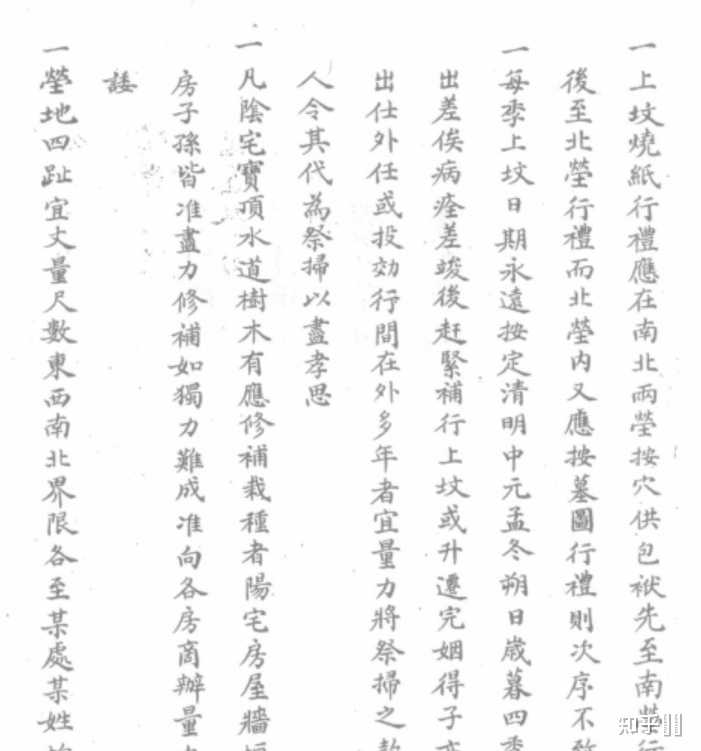 一上坟燒紙行禮應在南北兩塋按穴供包袱先至南塋行
後至北塋行禮而北塋内又應按墓圖行禮則次序不致
一每季上坟日期永遠按定清明中元孟冬朔日歲暮四季
出差俟病痊差竣後赶緊補行上坟或升遷完姻得子亦
出仕外任或投効行間在外多年者宜量力將祭掃之款
人令其代為祭掃以盡孝思
一凡陰宅寶頂水道樹木有應修補栽種者陽宅房屋牆垣
房子孫皆准盡力修補如獨力難成准向各房商辦量力
諉
一塋地四趾宜丈量尺數東西南北界限各至某處某姓
知乎